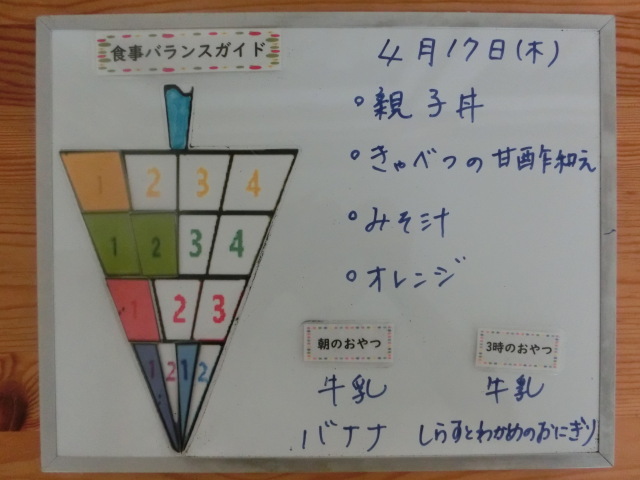 食事バランスガイド
4月17日(木)
○親子丼
○きゃべつの甘酢和え
○みそ汁
○オレンジ
1 2 3 4
1 2 3 4
1 2 3
1 2 1 2
朝のおやつ
牛乳
バナナ
3時のおやつ
牛乳
しらすとわかめのおにぎり